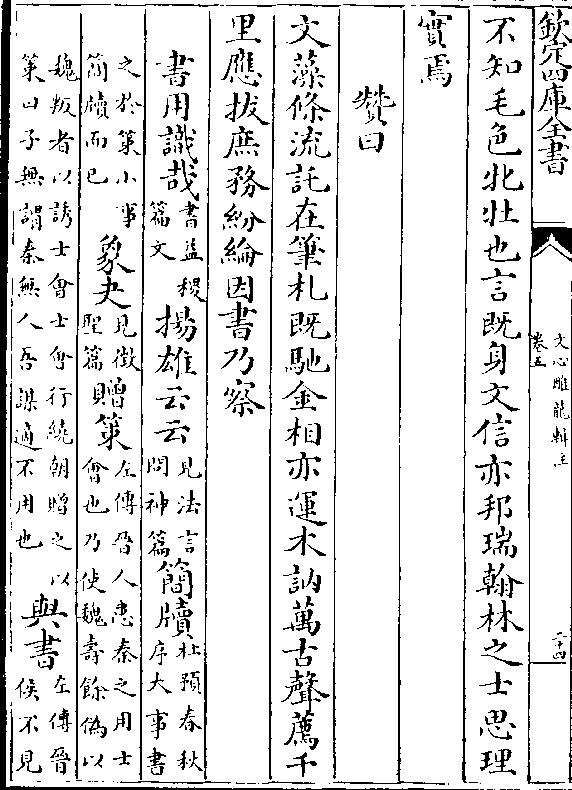 欽定四庫全書
文心雕龍輯注
卷五
二十四
不知毛色牝牡也言既身文信亦邦瑞翰林之士思理
實焉
贊曰
文藻條流託在筆札既馳金相亦運木訥萬古聲薦千
里應拔庶務紛綸因書乃察
書用識哉書益稷篇文揚雄云云見法言問神篇簡牘杜預春秋序大事書
之於策小事簡牘而已象夬見徵聖篇贈策左傳晉人患秦之用士會也乃使魏壽餘偽以
魏叛者以誘士會士會行繞朝贈之以策曰子無謂秦無人吾謀適不用也與書左傳晉侯不見